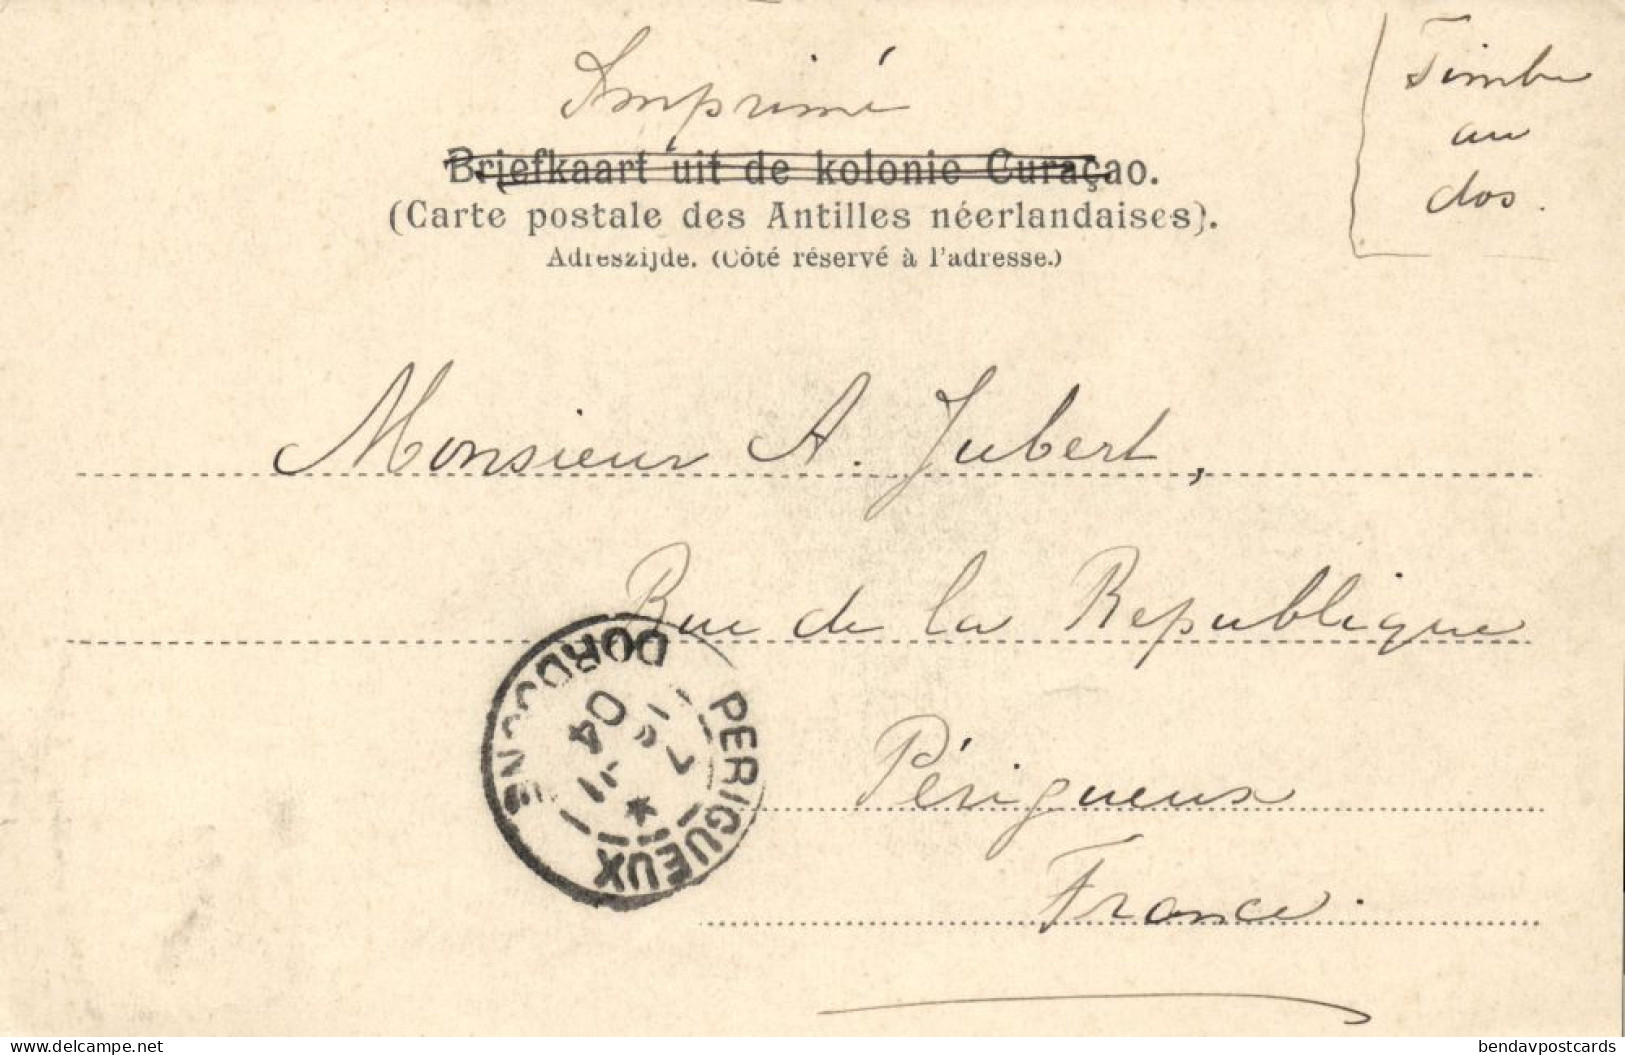 Imprimé
Timbre
au
dos.
Briefkaart uit de kolonie Curaçao.
(Carte postale des Antilles néerlandaises).
Adreszijde. (Côté réservé à l'adresse.)
Monsieur A. Jubert,
Rue de la Republique
Périgueux
France.
PERIGUEUX
DORDOGNE
7
16
11
04
delcampe.net
bendavpostcards